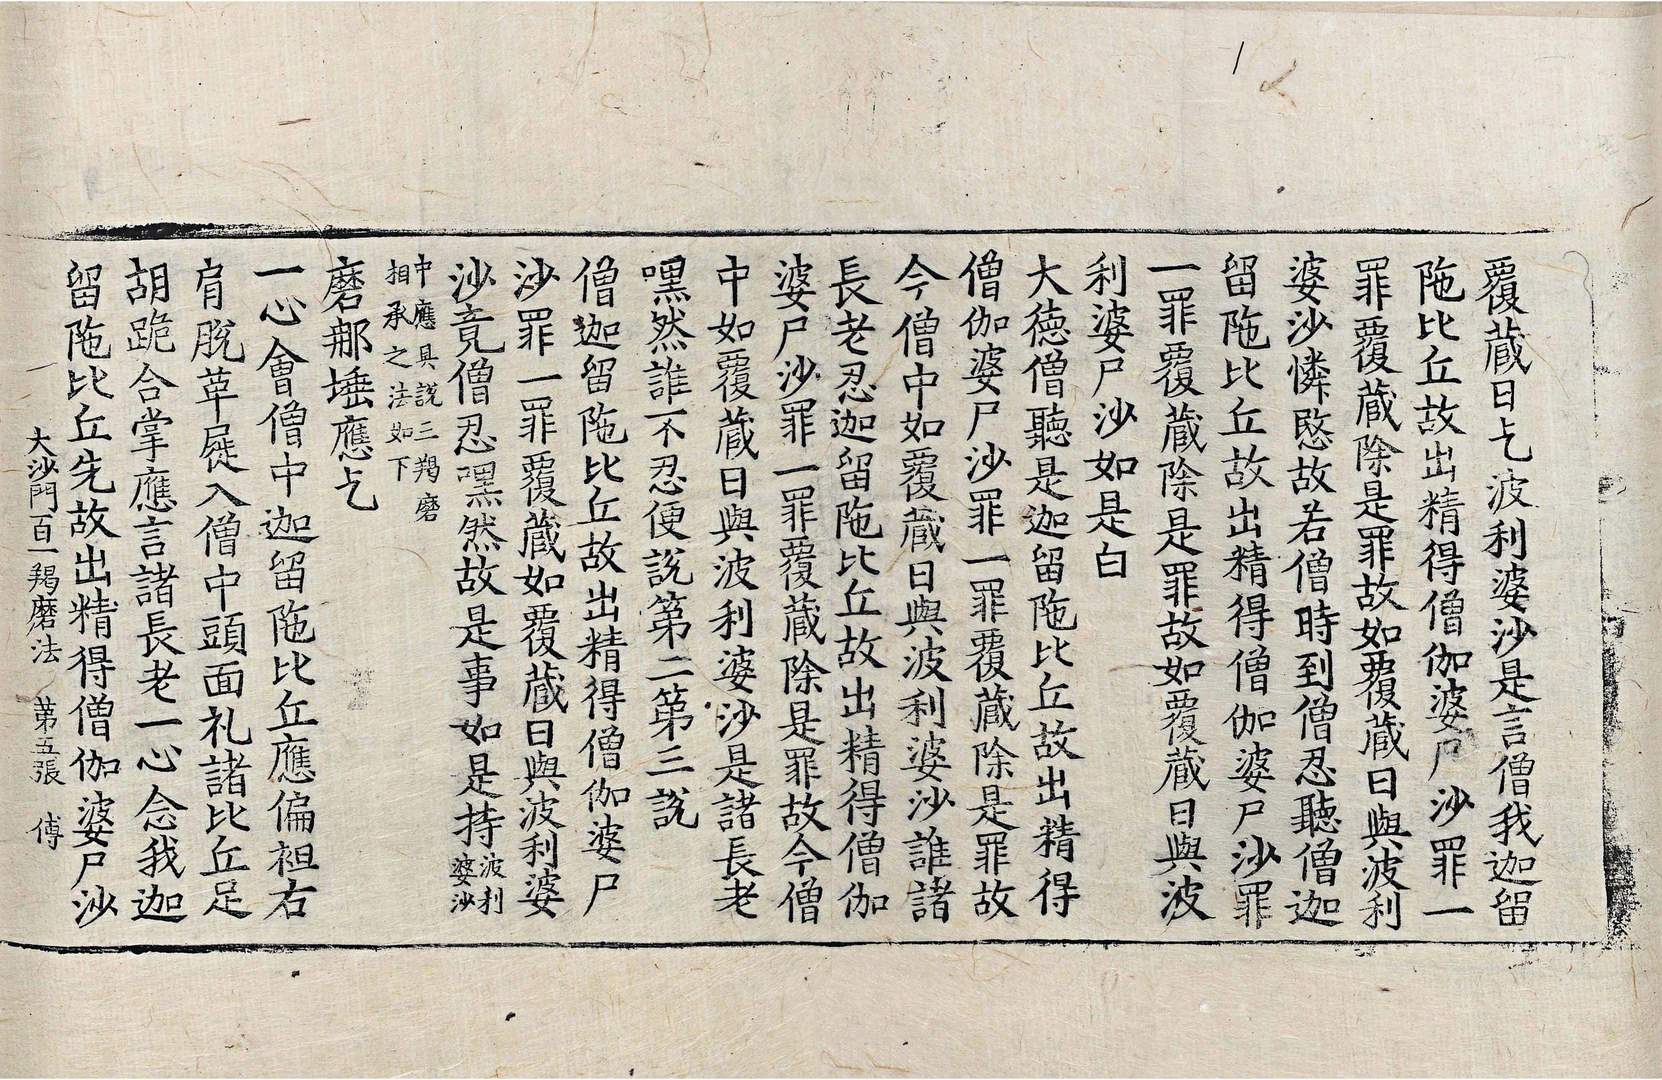 覆蔵日乞波利婆沙是言僧我迦留
陁比丘故出精得僧伽婆尸沙罪一
罪覆蔵除是罪故如覆蔵日與波利
婆沙憐愍故若僧時到僧忍聽僧迦
留陁比丘故出精得僧伽婆尸沙罪
一罪覆蔵除是罪故如覆蔵日與波
利婆尸沙如是白
大徳僧聽是迦留陁比丘故出精得
僧伽婆尸沙罪一罪覆蔵除是罪故
今僧中如覆蔵日與波利婆沙誰諸
長老忍迦留陁比丘故出精得僧伽
婆尸沙罪一罪覆蔵除是罪故今僧
中如覆蔵日與波利婆沙是諸長老
嘿然誰不忍便說第二第三說
僧迦留陁比丘故出精得僧伽婆尸
沙罪一罪覆蔵如覆蔵日與波利婆
沙竟僧忍嘿然故是事如是持波利
婆沙
中應具說三羯磨
相承之法如下
磨那埵應乞
一心會僧中迦留陁比丘應偏袒右
肩脫革屣入僧中頭面礼諸比丘足
胡跪合掌應言諸長老一心念我迦
留陁比丘先故出精得僧伽婆尸沙
大沙門百一羯磨法 第五張 傅